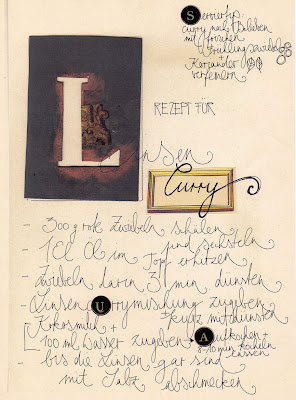 Serviertip:
Curry nach Belieben
mit frischen
Frühlingszwiebeln
+
Koriander
verfeinern
REZEPT FÜR
Linsen
Curry
- 300 g rote Zwiebeln schälen
und sechsteln
- 1 EL Öl im Topf erhitzen
- Zwiebeln darin 3 min dünsten
- Linsen U Currymischung zugeben
+ kurz mitdünsten
Kokosmilch +
100 ml Wasser zugeben Aufkochen +
8-10 min köcheln
lassen
bis die Linsen gar sind
- mit Salz abschmecken